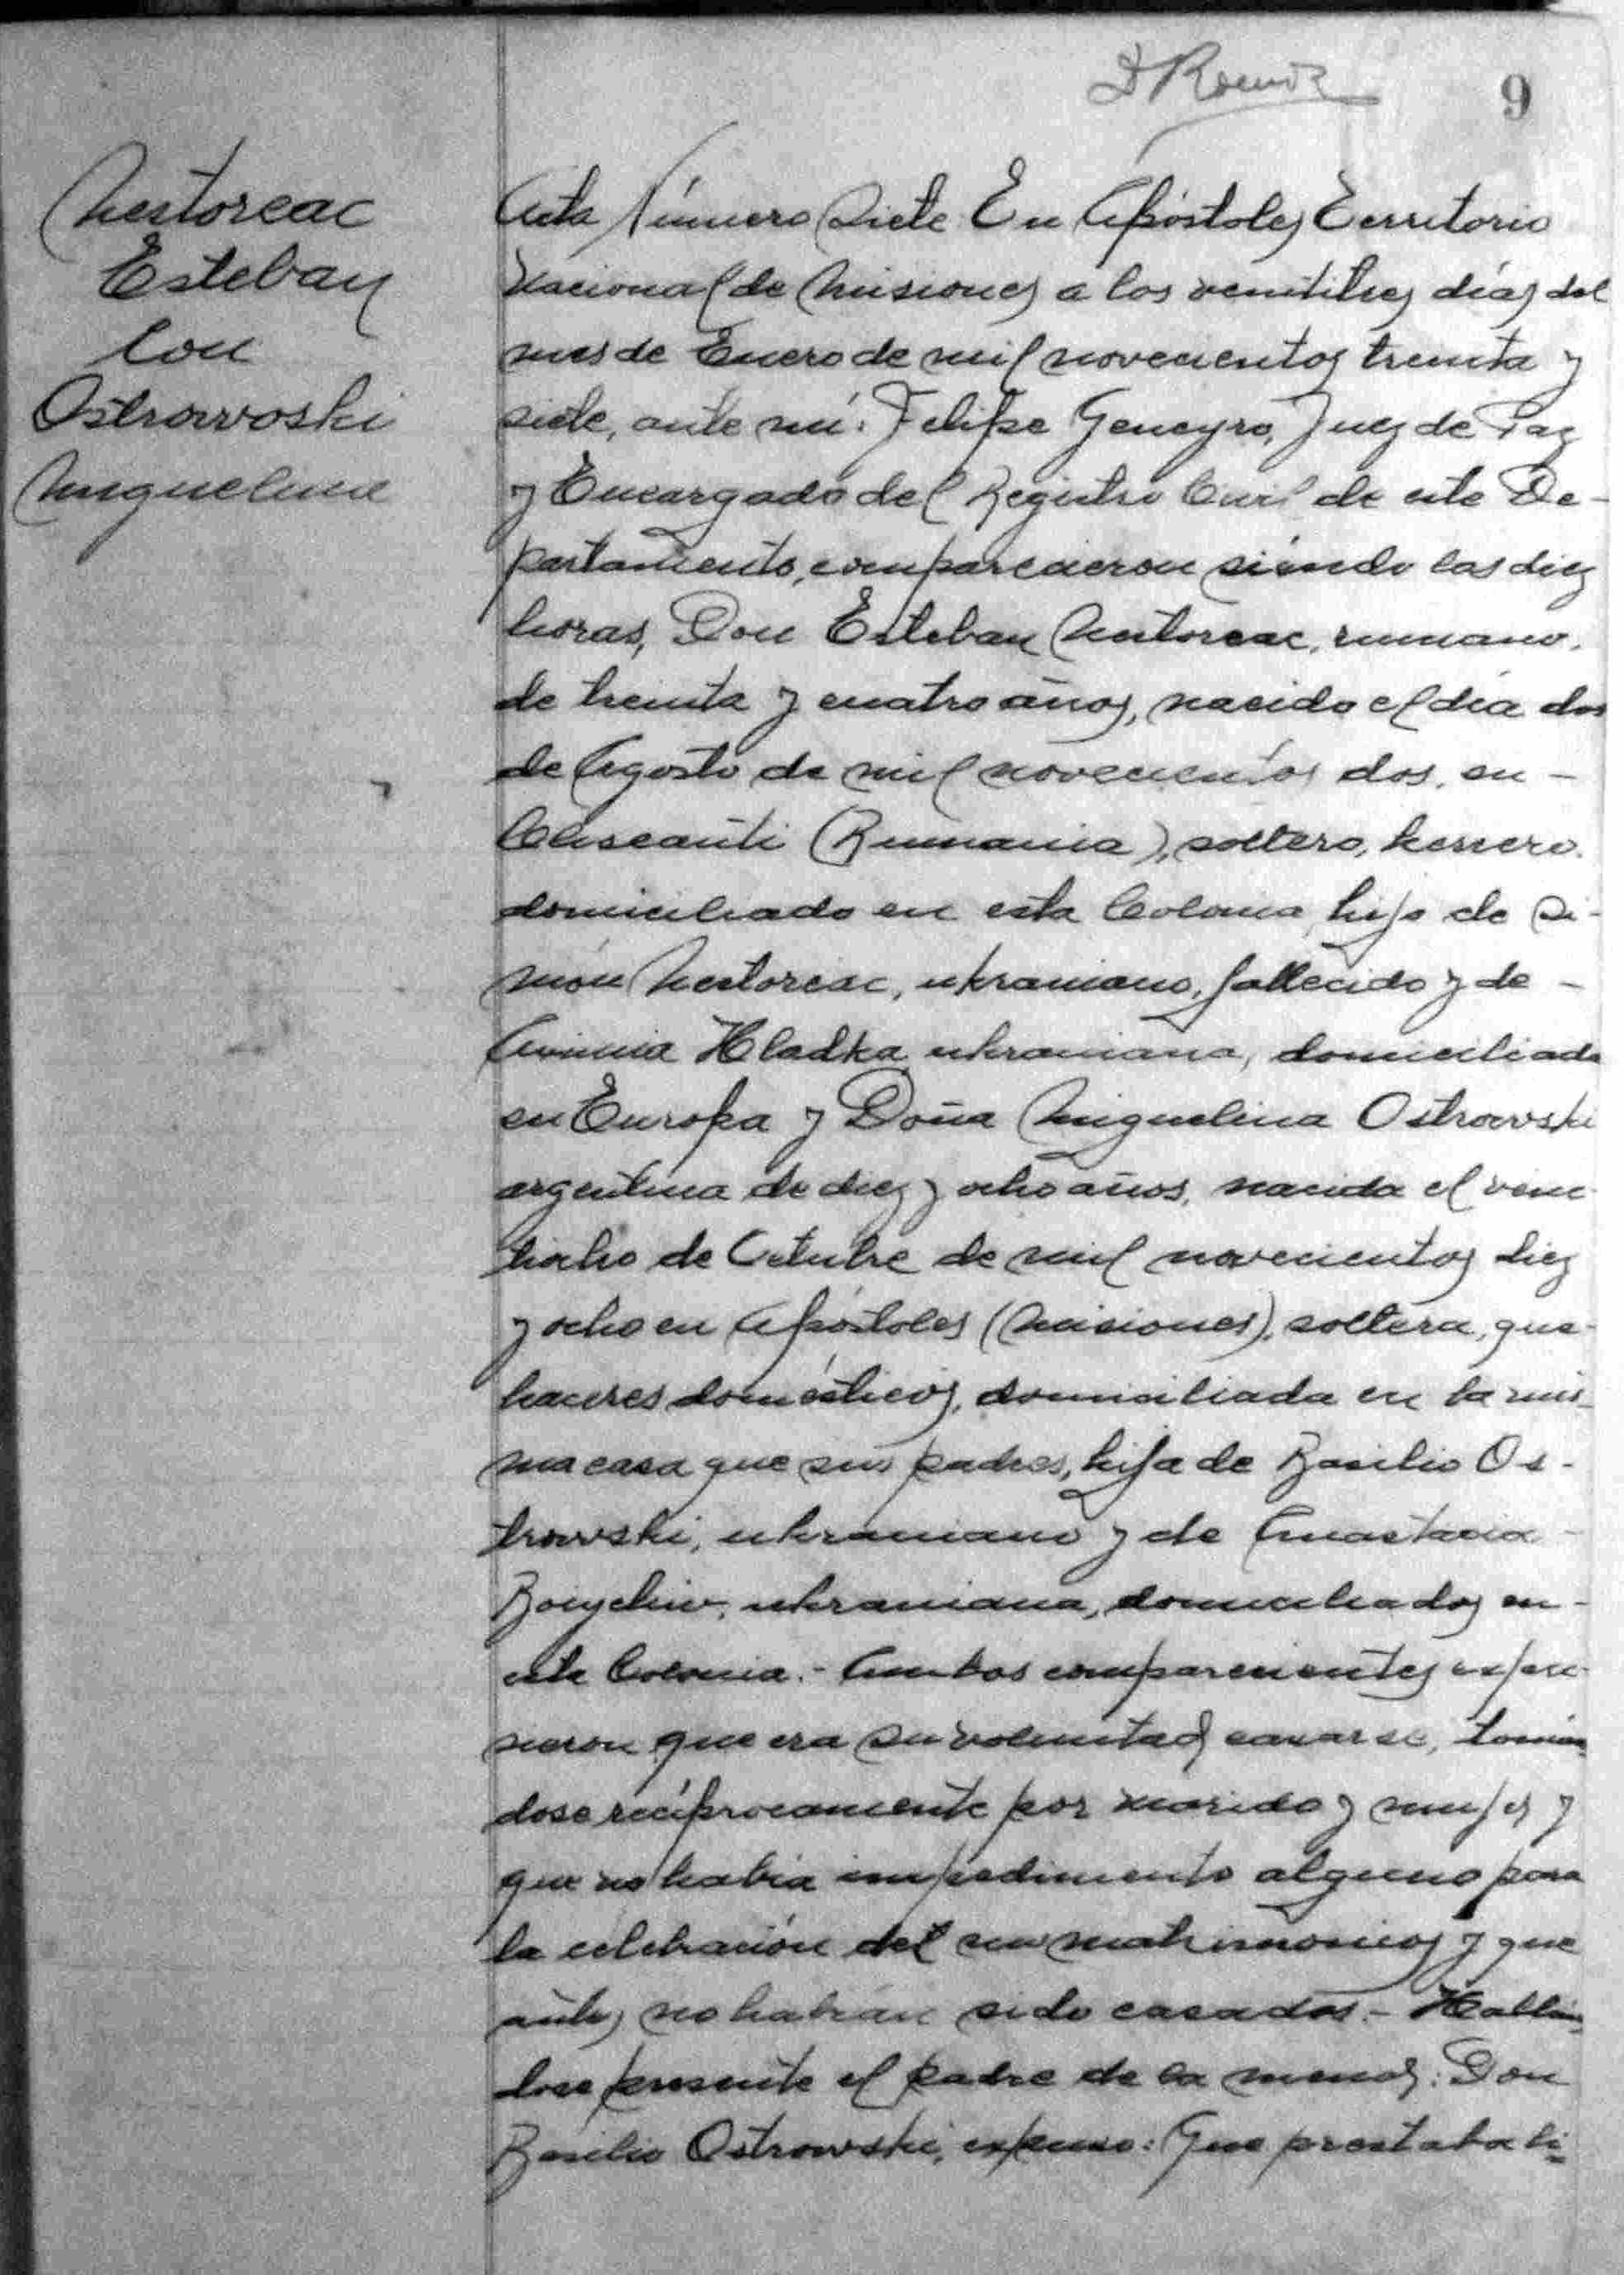 9
Nestoreac
Esteban
Con
Ostrowoski
Miguelina
Acta Número Siete. En Apóstoles Territorio
Nacional de Misiones a los veintitres días del
mes de Enero de mil novecientos treinta y
siete, ante mí: Felipe Geneyro, Juez de Paz
y Encargado del Registro Civil de este De-
partamento, comparecieron siendo las diez
horas, Don Esteban Nestoreac, rumano,
de treinta y cuatro años, nacido el día dos
de Agosto de mil novecientos dos, en -
(Rumania), soltero, herrero,
domiciliado en esta Colonia, hijo de Si-
món Nestoreac, ukraniano, fallecido y de -
Hladka, ukraniana, domiciliada
en Europa y Doña Miguelina Ostrowski
argentina de diez y ocho años, nacida el vein-
tiocho de Octubre de mil novecientos diez
y ocho en Apóstoles (Misiones), soltera, que-
haceres domésticos, domiciliada en la mis-
ma casa que sus padres, hija de Basilio Os-
trowski, ukraniano y de Anastacia -
ukraniana, domiciliados en -
esta Colonia.- Ambos comparecientes expu-
sieron que era su voluntad casarse, tomán
dose recíprocamente por marido y mujer y
que no había impedimento alguno para
la celebración del matrimonio y que
antes no habían sido casados.- Hallán
dose presente el padre de la menor: Don
Basilio Ostrowski, expuso: Que prestaba li-